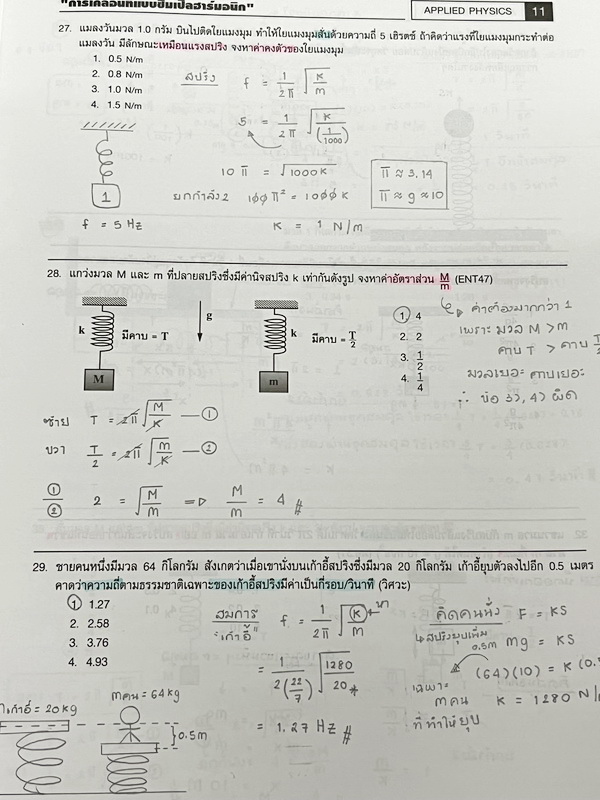 "การเคลื่อนที่แบบซิมเปิลฮาร์มอนิก"
APPLIED PHYSICS 11
27. แมลงวันมวล 1.0 กรัม บินไปติดใยแมงมุม ทำให้ใยแมงมุมสั่นด้วยความถี่ 5 เฮิรตซ์ ถ้าคิดว่าแรงที่ใยแมงมุมกระทำต่อ
แมลงวัน มีลักษณะเหมือนแรงสปริง จงหาค่าคงตัวของใยแมงมุม
1. 0.5 N/m
2. 0.8 N/m
3. 1.0 N/m
4. 1.5 N/m
สปริง f = 1/2π √(K/m)
5 = 1/2π √(K/(1/1000))
10π = √1000K
ยกกำลัง2 100π² = 1000K
K = 1 N/m
π ≈ 3.14
π ≈ g ≈ 10
1
f = 5 Hz
28. แกว่งมวล M และ m ที่ปลายสปริงซึ่งมีค่านิจสปริง k เท่ากันดังรูป จงหาค่าอัตราส่วน M/m (ENT47)
k มีคาบ = T
M
g
k มีคาบ = T/2
m
1. 4
2. 2
3. 1/2
4. 1/4
ค่าต้องมากกว่า 1
เพราะ มวล M > m
คาบ T > คาบ T/2
มวลเยอะ คาบเยอะ
∴ ข้อ 3), 4) ผิด
ซ้าย T = 2π √(M/K) — ①
ขวา T/2 = 2π √(m/K) — ②
①/② 2 = √(M/m) ⇒ M/m = 4 #
29. ชายคนหนึ่งมีมวล 64 กิโลกรัม สังเกตว่าเมื่อเขานั่งบนเก้าอี้สปริงซึ่งมีมวล 20 กิโลกรัม เก้าอี้ยุบตัวลงไปอีก 0.5 เมตร
คาดว่าความถี่ตามธรรมชาติเฉพาะของเก้าอี้สปริงมีค่าเป็นกี่รอบ/วินาที (วิศวะ)
1. 1.27
2. 2.58
3. 3.76
4. 4.93
สมการ "เก้าอี้" f = 1/2π √(K/m) หา
= 1/2(22/7) √(1280/20)
= 1.27 Hz #
คิดคนนั่ง F = KS
สปริงยุบเพิ่ม 0.5m mg = KS
(64)(10) = K (0.
เฉพาะ
mคน K = 1280 N/
ที่ทำให้ยุบ
เก้าอี้ = 20 kg
mคน = 64 kg
0.5m